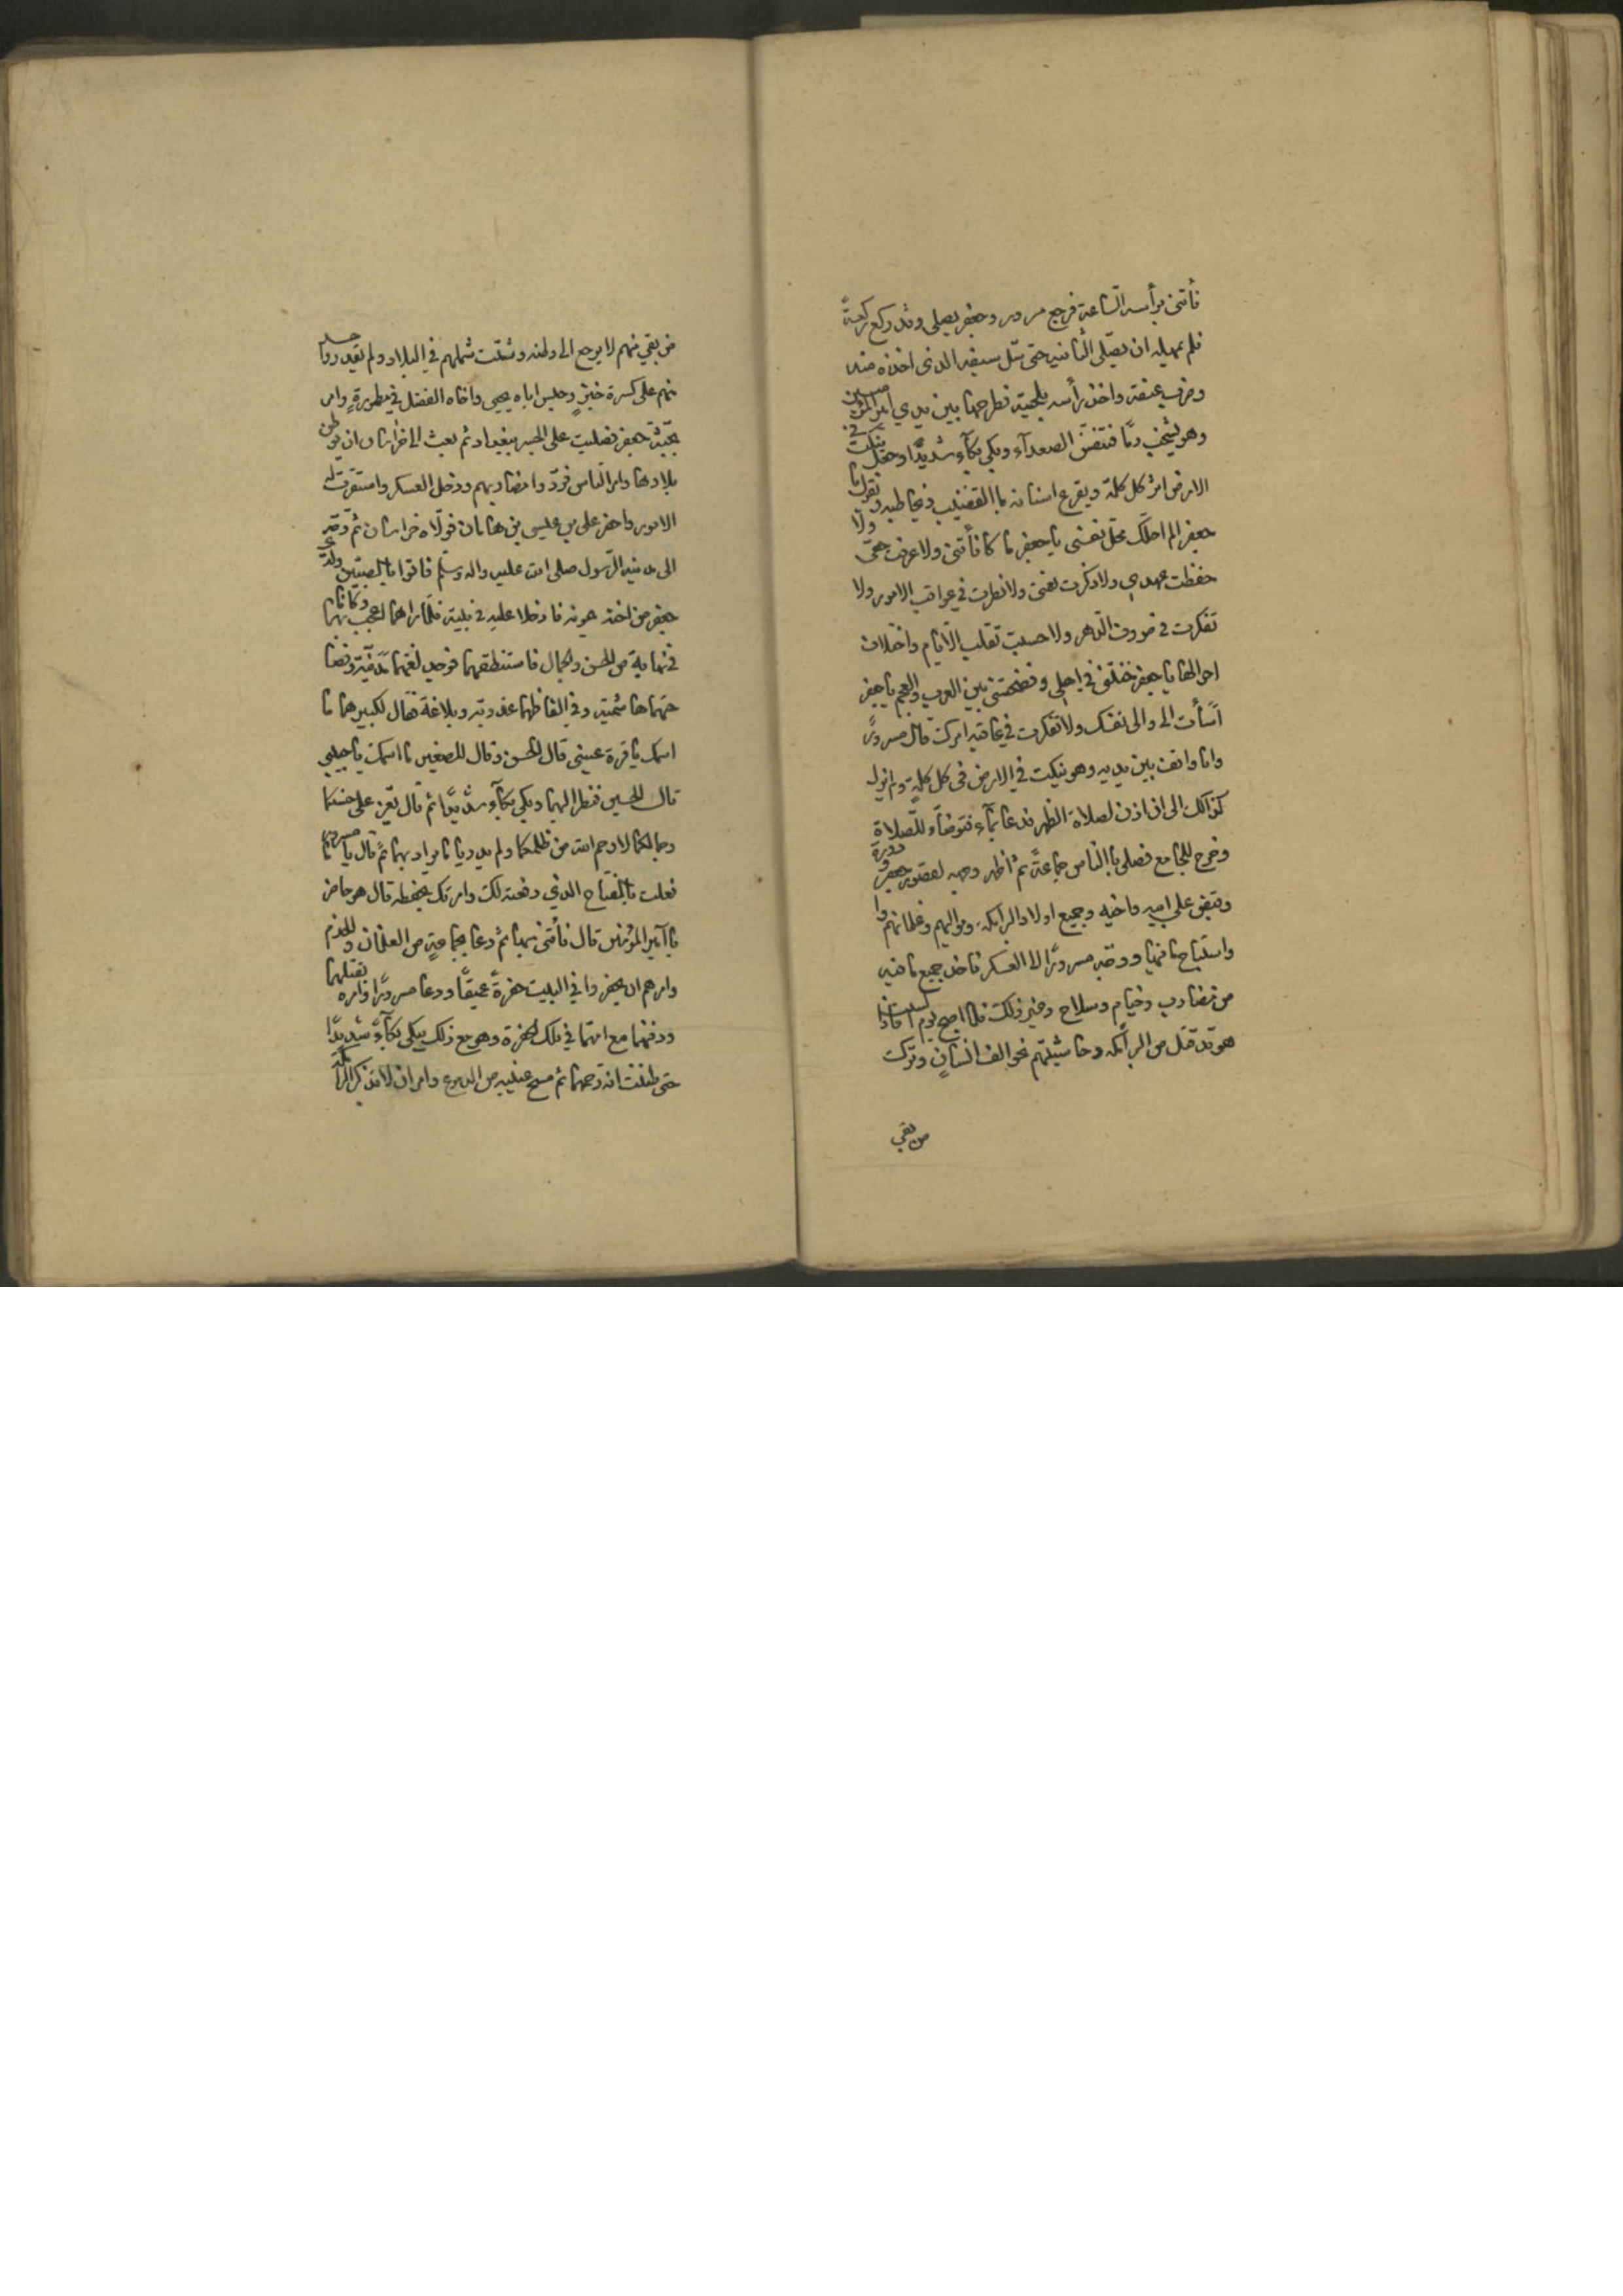 فأتني برأسه الساعة فرجع مسرور وجعفر يصلي وقد ركع ركعةً
فلم يمهله ان يصلي الثانية حتى سل سيفه الذي اخذه منه
وضرب عنقه واخذ رأسه بلحيته فطرحها بين يدي امير المؤمنين
وهو يشخب دمًا فتنفس الصعدآء وبكى بكآء شديدًا وجعل ينكت في
الارض اثر كل كلمة ويقرع اسنانه باالقضيب ويخاطبه ويقول يا
جعفر الم احلك محل نفسي يا جعفر ما كافأتني ولا عرفت حقي ولا
حفظت عهدي ولا ذكرت نعمتي ولا نظرت في عواقب الامور ولا
تفكرت في صروف الدهر ولا حسبت تقلب الايام واختلاف
احوالها يا جعفر خنتني في اهلي وفضحتني بين العرب والعجم يا جعفر
اسأت الي والى نفسك ولا تفكرت في عاقبه امرك قال مسرورً
وانا واقف بين يديه وهو ينكت في الارض في كل كلمةٍ ولم يزل
كذالك الى ان اذن لصلاة الظهر فدعا بمآء فتوضأ وللصلاة
وخرج للجامع فصلى باالناس جماعةً ثم أظهر وجهه لقصور جعفر ودوره
وقبض على ابيه واخيه وجميع اولاد البرامكه ومواليهم وغلمانهم وا
واستباح ما فيها ووجه مسرورًا الا العسكر فاخذ جميع ما فيه
من مضارب وخيام وسلاح وغير ذلك فلما اصبح يوم السبت فاذا
هو قد قتل من البرامكه وحاشيتهم نحو الف انسانٍ وترك
من بقي
من بقي منهم لا يرجع الى وطنه وشتت شملهم في البلاد ولم يقدروا احد
منهم على كسرة خبزٍ وحبس اباه يحيى واخاه الفضل في مطمورةٍ وامر
بجثة جعفر فصلبت على الجسر ببغداد ثم بعث الى خراسان ان يوطن
بلادها وامر الناس فردوا مضاربهم ودخل العسكر واستقرت له
الامور واحضر علي بن عيسى بن هامان فولاه خراسان ثم وجه
الى مدينة الرسول صلى الله عليه واله وسلم فاتوا بالصبيين ولدي
جعفر من اخته ميمونه فادخلا عليه في بيته فلما رأهما اعجب بهما وكانا
في نهاية من الحسن والجمال فاستنطقهما فوجد لغتهما مدنية وفصا
حتهما هاشمية وفي الفاظهما عذوبة وبلاغة فقال لكبيرهما ما
اسمك يا قرة عيني قال الحسن وقال للصغير ما اسمك يا حبيبي
قال الحسين فنظر اليهما وبكى بكآء شديدًا ثم قال يعز على حسنكما
وجمالكما لا رحم الله من ظلمكما ولم يدريا ما يراد بهما ثم قال يا مسرور ما
فعلت باالمفتاح الذي دفعته لك وامرتك بحفظه قال هو حاضر
يا أمير المؤمنين قال فأتني به ثم دعا بجماعةٍ من الغلمان والخدم
وامرهم ان يحفروا في البيت حفرةً عميقًا ودعا مسرورًا وامره بقتلهما
ودفنهما مع امهما في تلك الحفرة وهو مع ذلك يبكي بكآءً شديدًا
حتى ظننت انه رحمهما ثم مسح عينيه من الدموع وامر ان لا تذكر البرامكة